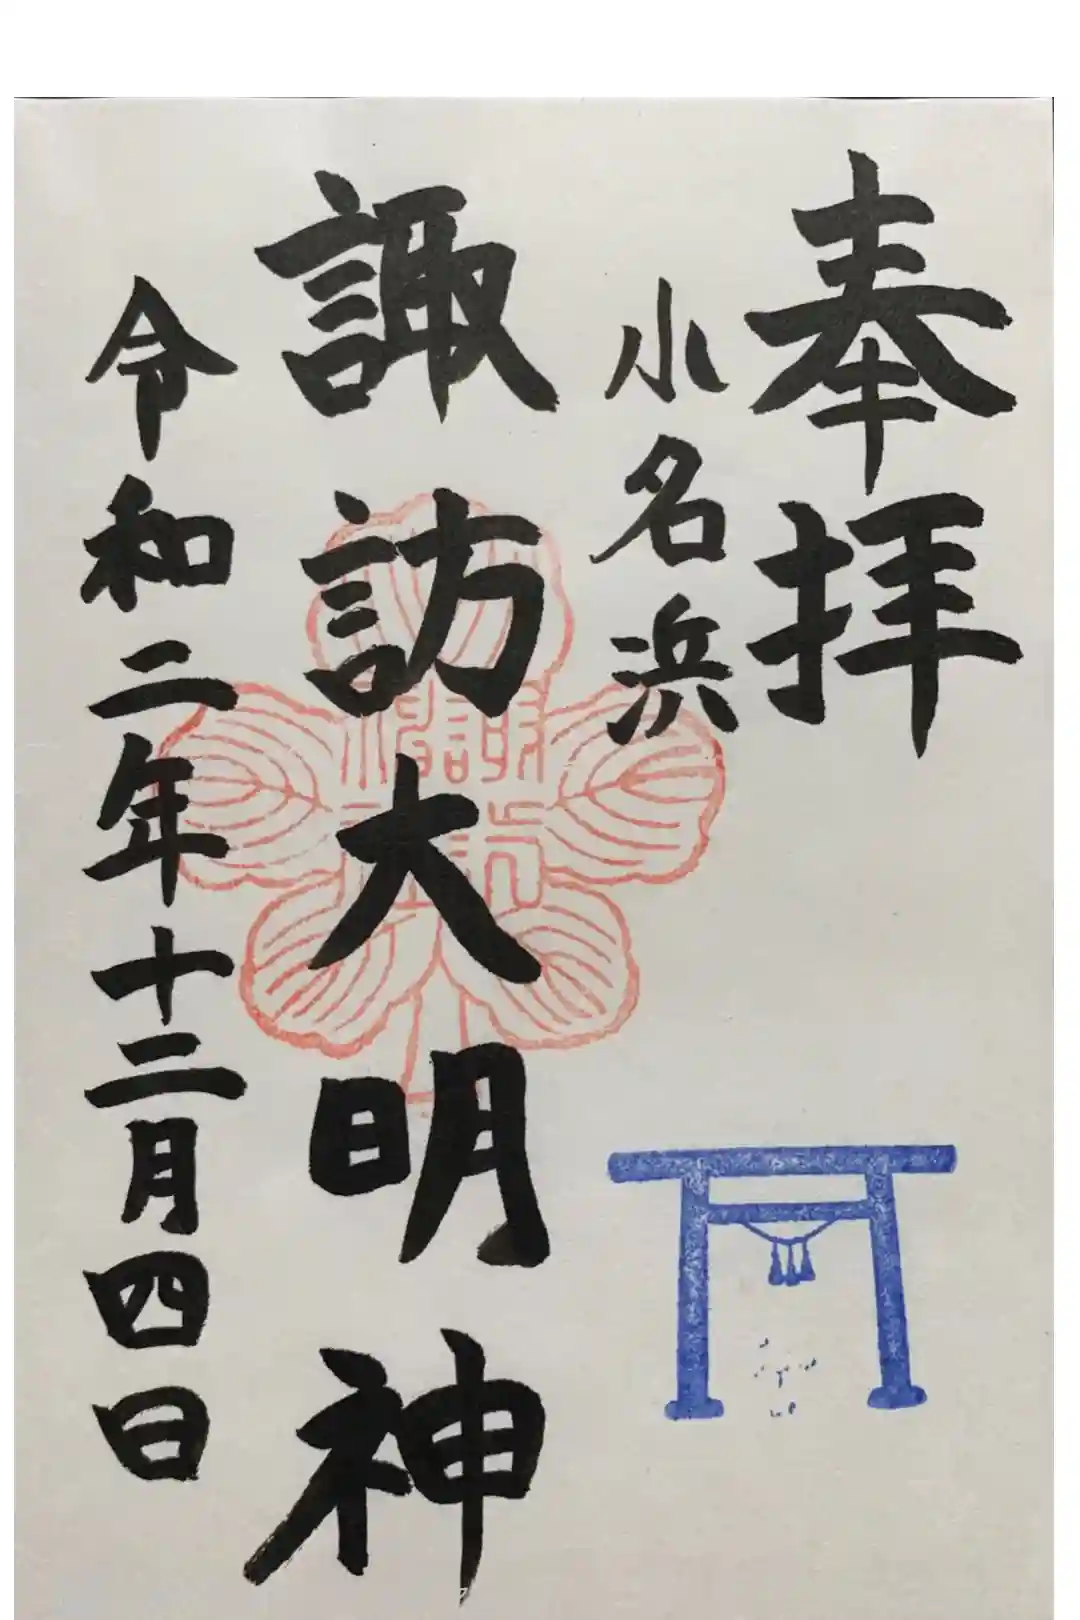 奉拝
小名浜
諏訪大明神
令和二年十二月四日